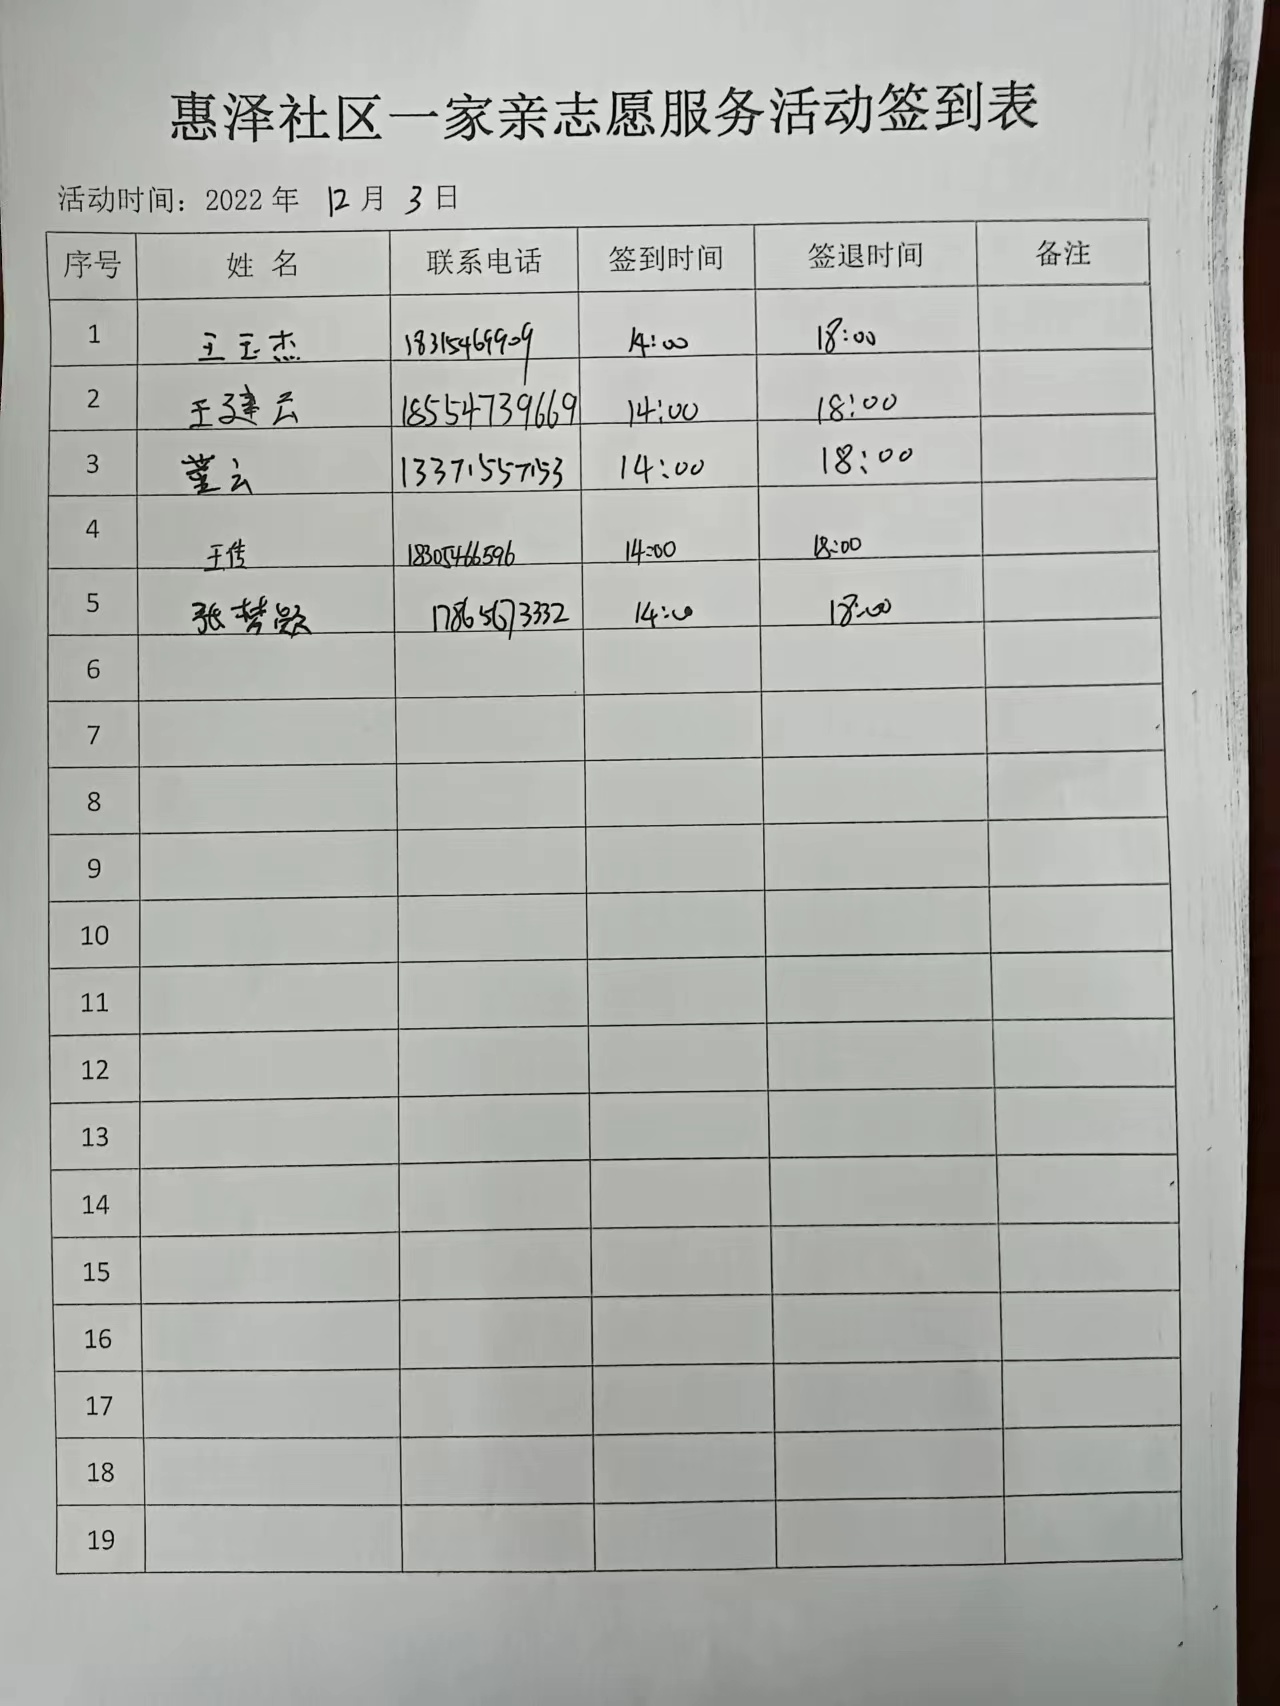 惠泽社区一家亲志愿服务活动签到表
活动时间：2022年 12月 3日
序号 姓 名 联系电话 签到时间 签退时间 备注
1 王玉杰 18315469909 14:00 18:00
2 王建云 18554739669 14:00 18:00
3 董云 13371557153 14:00 18:00
4 王传 18305466596 14:00 18:00
5 张梦 17865673332 14:00 18:00
6
7
8
9
10
11
12
13
14
15
16
17
18
19